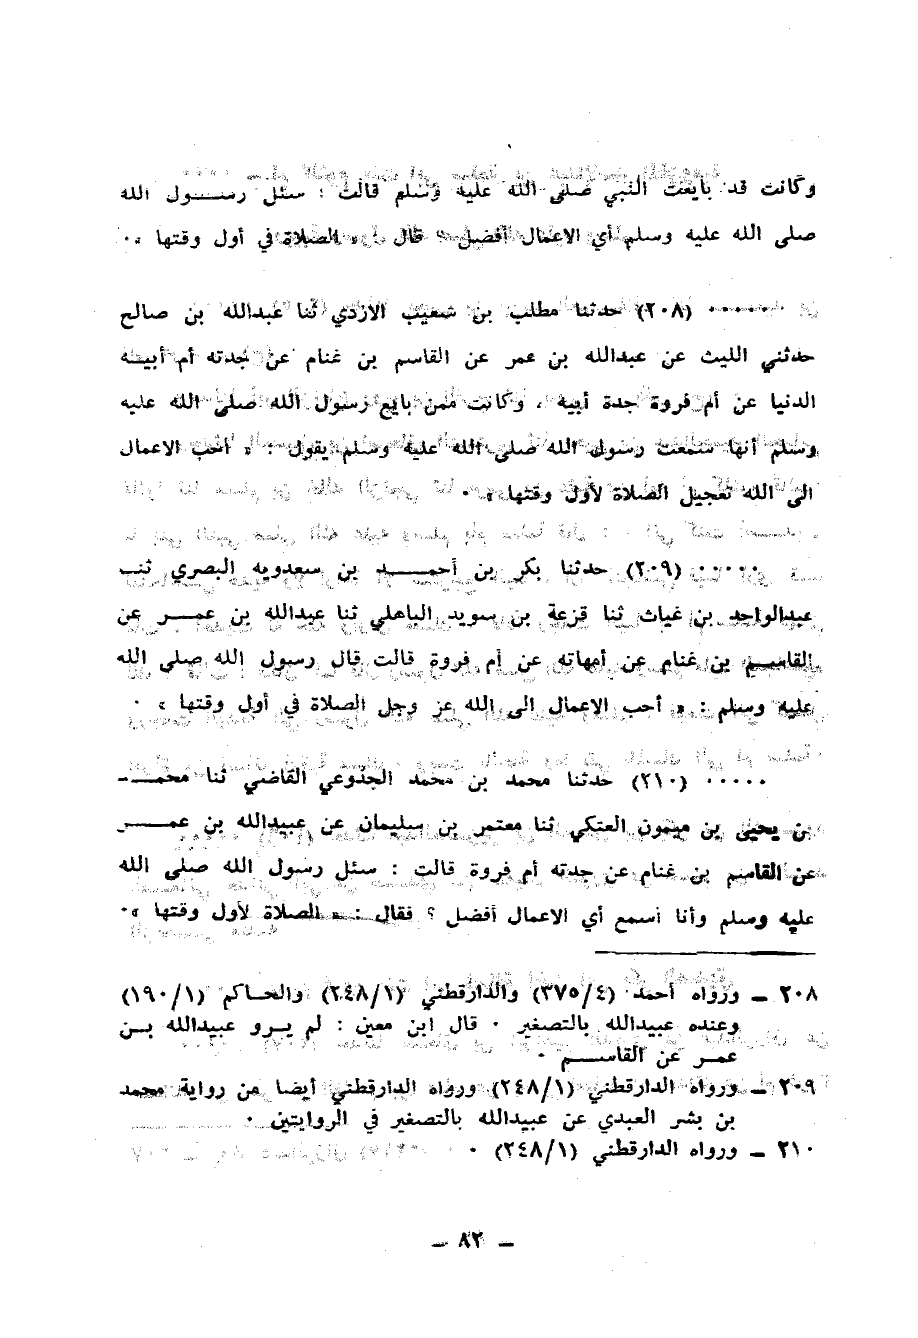 وكانت قد بايعت النبي صلى الله عليه وسلم قالت : سئل رســـول الله
صلى الله عليه وسلم أي الاعمال أفضل ؟ قال : « الصلاة في أول وقتها » ٠
٠٠٠٠٠٠ (٢٠٨) حدثنا مطلب بن شعيب الازدي ثنا عبدالله بن صالح
حدثني الليث عن عبدالله بن عمر عن القاسم بن غنام عن جدته أم أبيــه
الدنيا عن أم فروة جدة أبيه ، وكانت ممن بايع رسول الله صلى الله عليه
وسلم أنها سمعت رسول الله صلى الله عليه وسلم يقول : « أحب الاعمال
الى الله تعجيل الصلاة لأول وقتها » ٠
٠٠٠٠٠ (٢٠٩) حدثنا بكر بن أحمـــد بن سعدويه البصري ثنــا
عبدالواحد بن غياث ثنا قزعة بن سويد الباهلي ثنا عبدالله بن عمـــر عن
القاســم بن غنام عن أمهاته عن أم فروة قالت قال رسول الله صلى الله
عليه وسلم : « أحب الاعمال الى الله عز وجل الصلاة في أول وقتها » ٠
٠٠٠٠٠ (٢١٠) حدثنا محمد بن محمد الجذوعي القاضي ثنا محمــد
بن يحيى بن ميمون العتكي ثنا معتمر بن سليمان عن عبيدالله بن عمـــر
عن القاسم بن غنام عن جدته أم فروة قالت : سئل رسول الله صلى الله
عليه وسلم وأنا أسمع أي الاعمال أفضل ؟ فقال : « الصلاة لأول وقتها » ٠
٢٠٨ ــ ورواه أحمد (٣٧٥/٤) والدارقطني (٢٤٨/١) والحـاكم (١٩٠/١)
وعنده عبيدالله بالتصغير ٠ قال ابن معين : لم يـرو عبيدالله بــن
عمـر عن القاســم ٠
٢٠٩ ــ ورواه الدارقطني (٢٤٨/١) ورواه الدارقطني أيضا من رواية محمد
بن بشر العبدي عن عبيدالله بالتصغير في الروايتين ٠
٢١٠ ــ ورواه الدارقطني (٢٤٨/١) ٠
ــ ٨٢ ــ